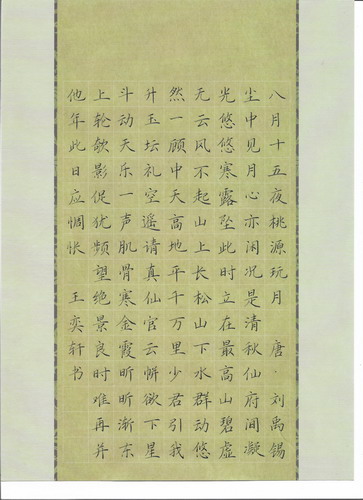 八月十五夜桃源玩月 唐·刘禹锡
尘中见月心亦闲况是清秋仙府间凝
光悠悠寒露坠此时立在最高山碧虚
无云风不起山上长松山下水群动悠
然一顾中天高地平千万里少君引我
升玉坛礼空遥请真仙官云帡欲下星
斗动天乐一声肌骨寒金霞昕昕渐东
上轮欹影促犹频望绝景良时难再并
他年此日应惆怅 王奕轩书